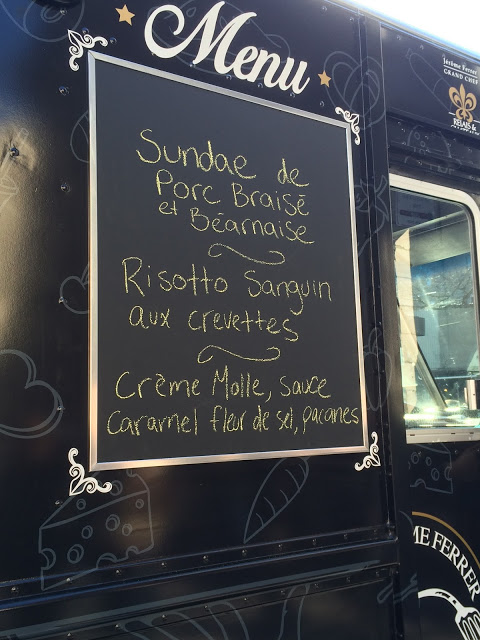 Menu
Jérôme Ferrer
GRAND CHEF
RELAIS &
Sundae de
Porc Braisé
et Béarnaise
Risotto Sanguin
aux crevettes
Crème Molle, sauce
Caramel fleur de sel, pacanes
ME FERRER